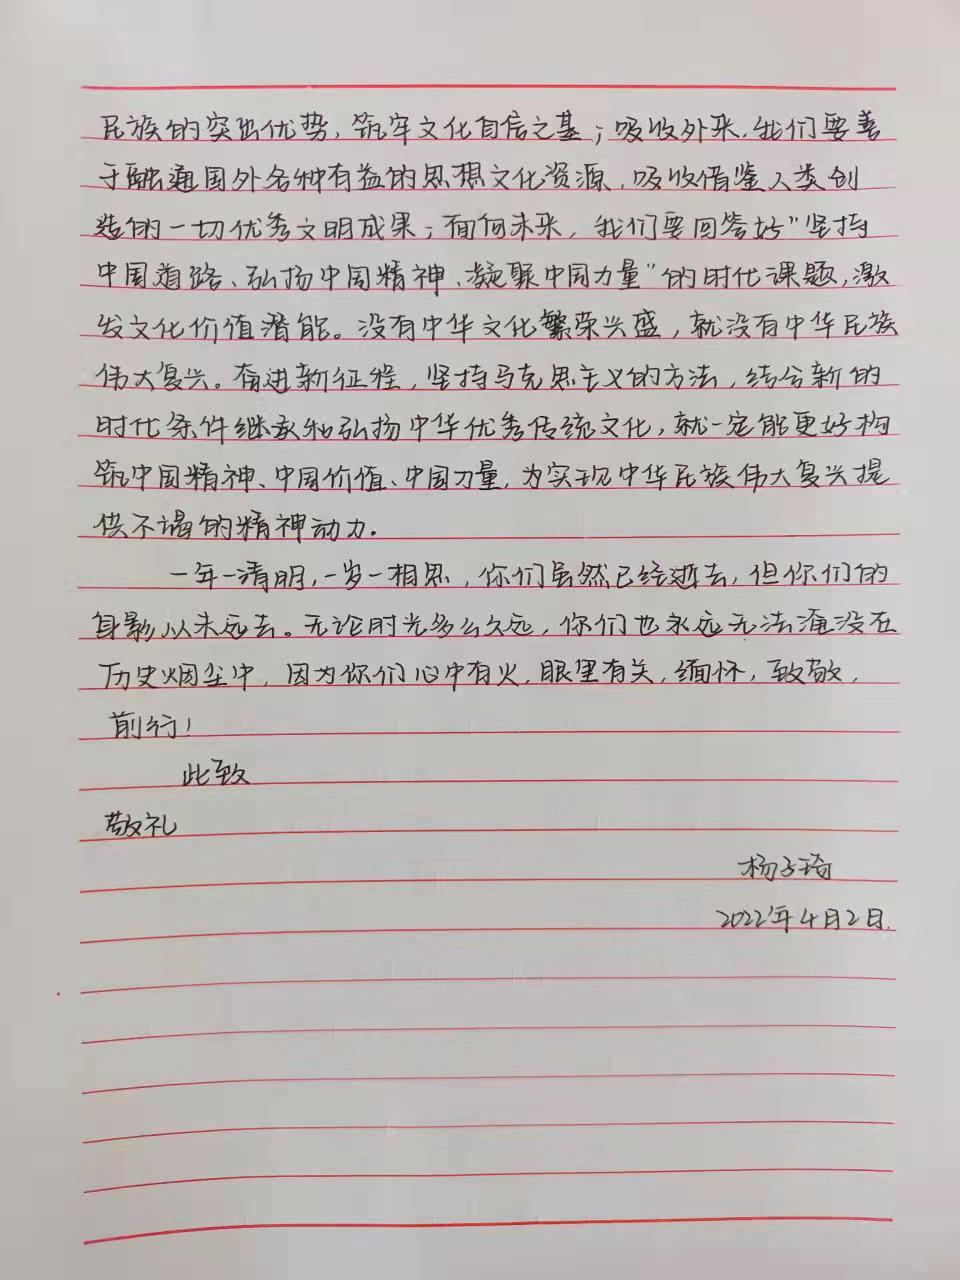 民族的突出优势，筑牢文化自信之基；吸收外来，我们要善
于融通国外各种有益的思想文化资源，吸收借鉴人类创
造的一切优秀文明成果；面向未来，我们要回答好“坚持
中国道路、弘扬中国精神、凝聚中国力量”的时代课题，激
发文化价值潜能。没有中华文化繁荣兴盛，就没有中华民族
伟大复兴。奋进新征程，坚持马克思主义的方法，结合新的
时代条件继承和弘扬中华优秀传统文化，就一定能更好构
筑中国精神、中国价值、中国力量，为实现中华民族伟大复兴提
供不竭的精神动力。
一年一清明，一岁一相思，你们虽然已经逝去，但你们的
身影从未远去。无论时光多么久远，你们也永远无法淹没在
历史烟尘中，因为你们心中有火，眼里有光，缅怀，致敬，
前行！
此致
敬礼
杨子琦
2022年4月2日.